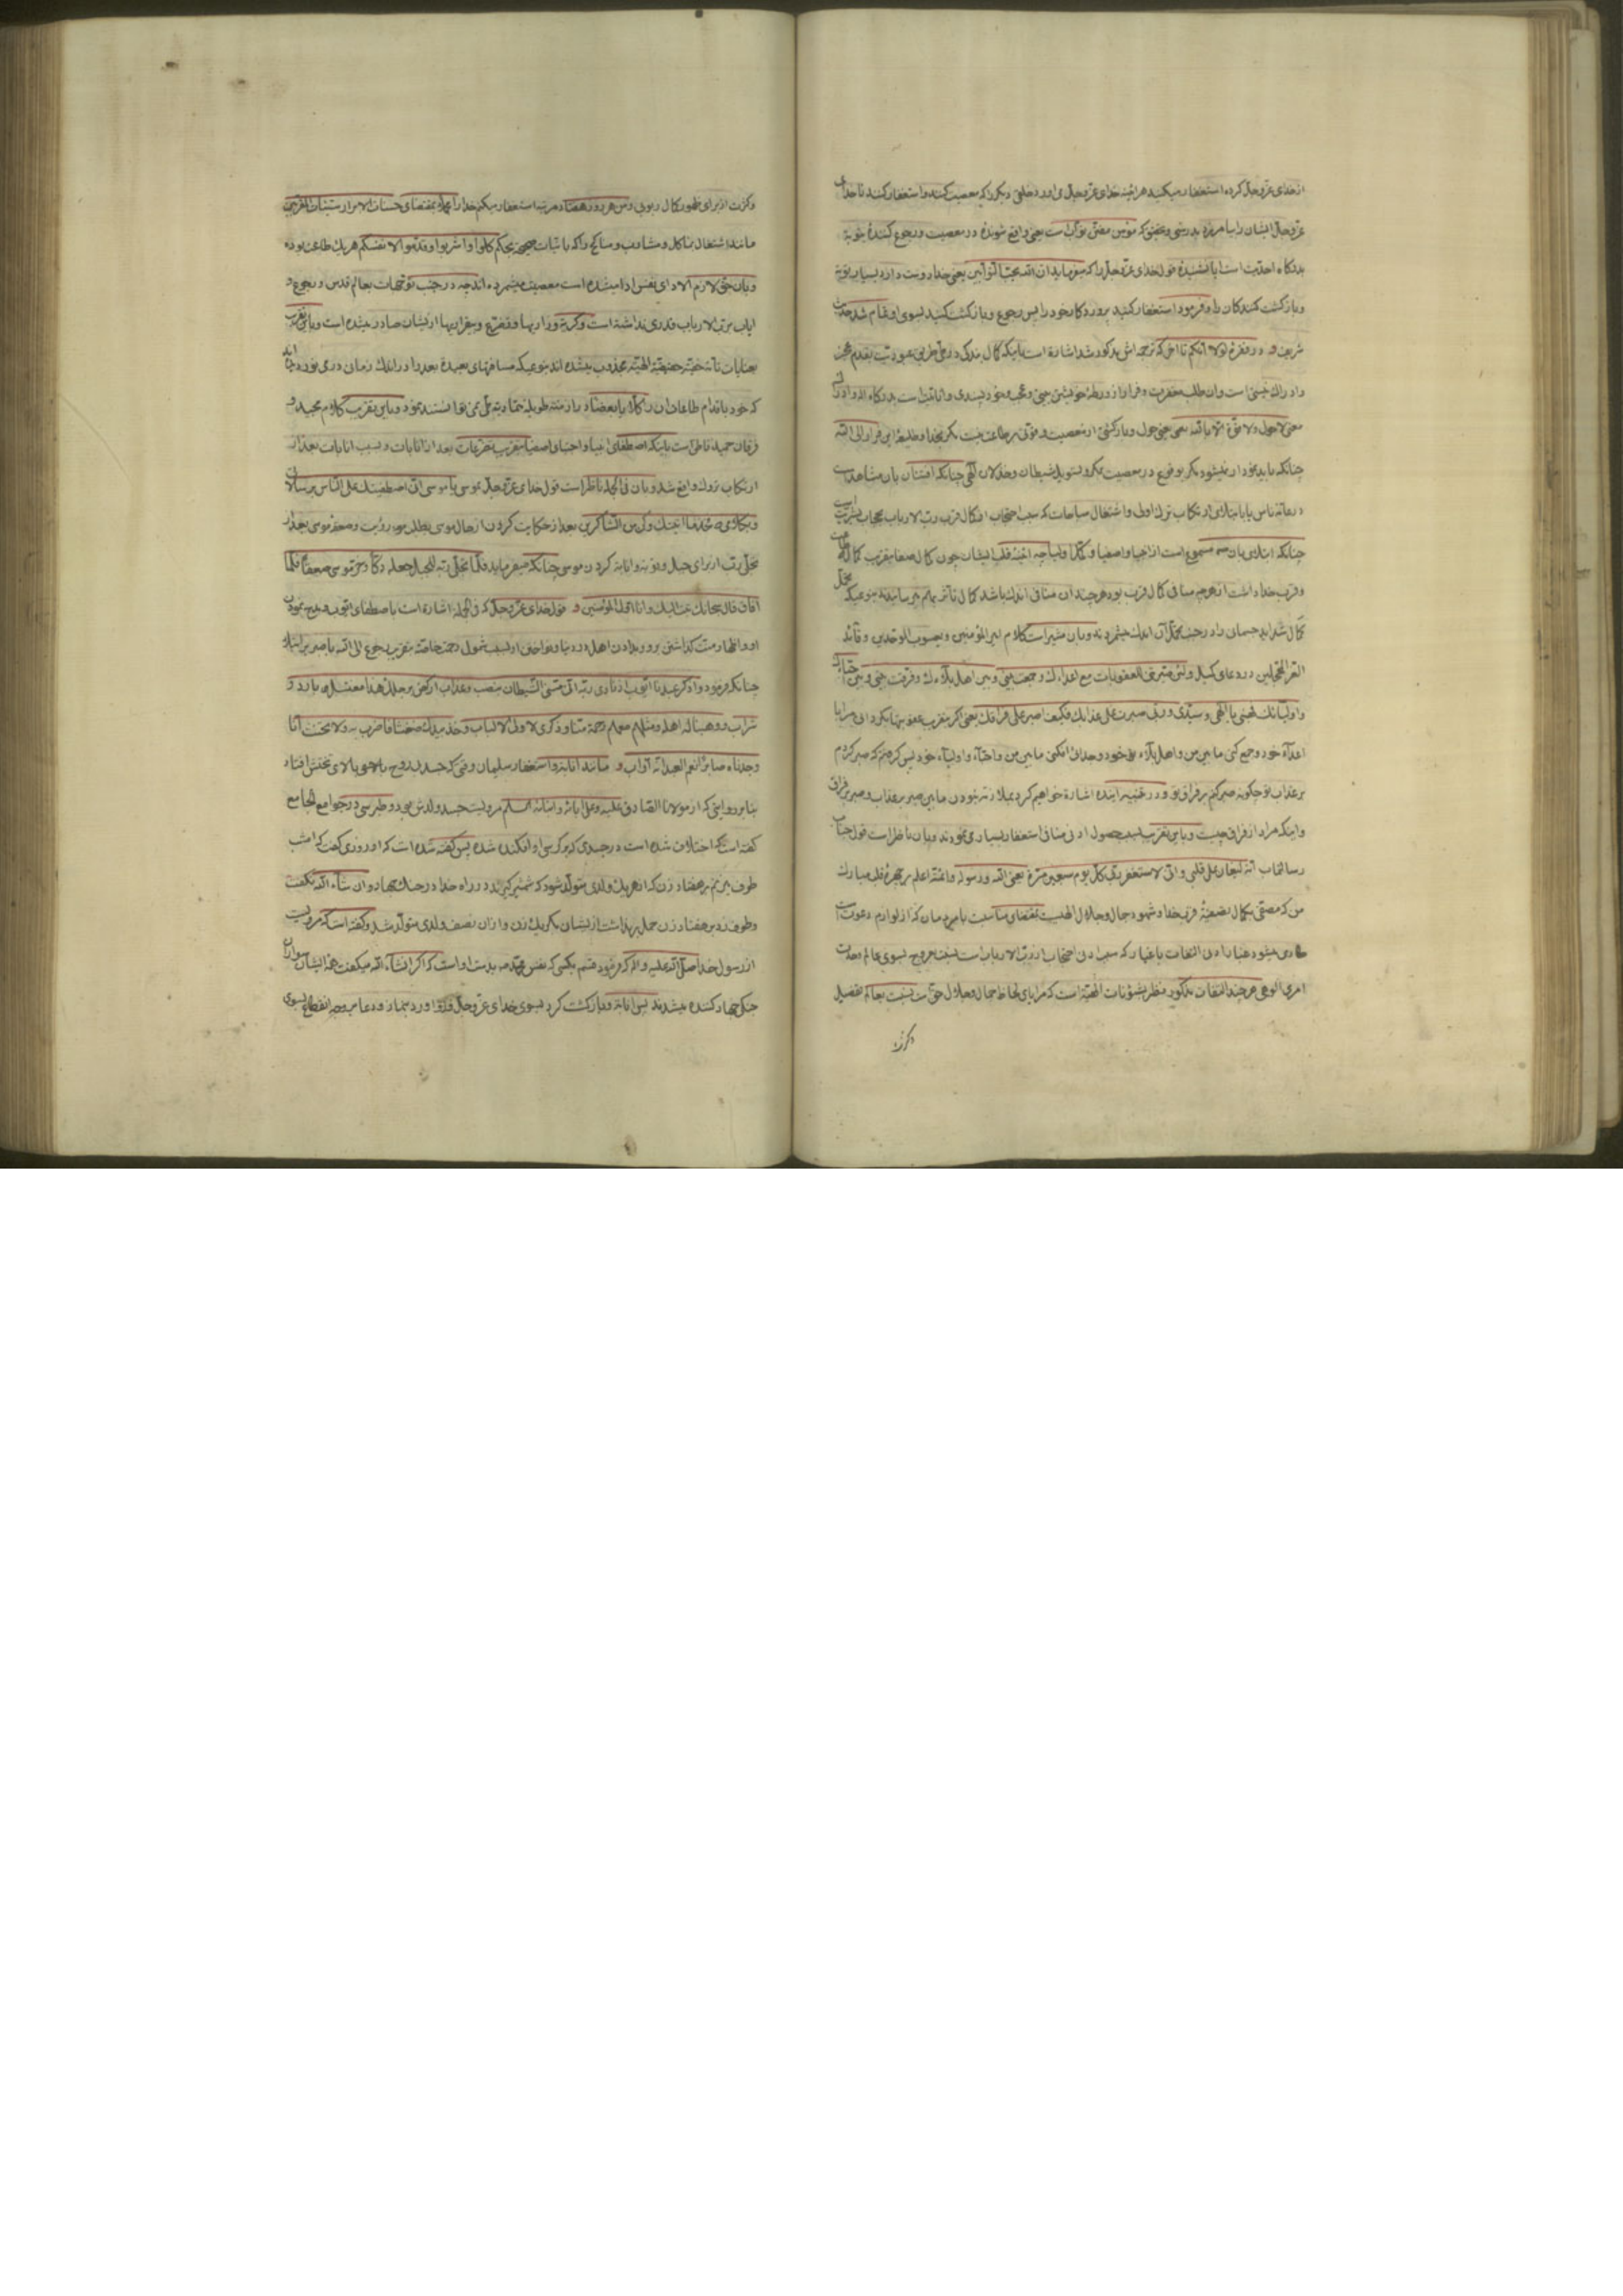 از خدای عزّ وجلّ کرده استغفار میکنید هر اینه خدای عزّ وجلّ می اورد خلقی دیگر را که معصیت کنند و استغفار کنند تا خدای
عزّ وجلّ ایشان را بیامرزد بدرستی و تحقیق که مؤمن مفتّن توّاب است یعنی واقع شوندهٔ در معصیت و رجوع کنندهٔ بتوبهٔ
بدرکاه احدیّت است ایا نشنیدهٔ قول خدای عزّ وجلّ را که میفرماید انّ اللّه یحبّ التّوّابین یعنی خدا دوست دارد بسیار توبهٔ
و باز کشت کنندکان را و فرمود استغفار کنید پروردکار خود را پس رجوع و باز کشت کنید بسوی او تمام شد حدیث
شریف و در فقرهٔ لولا انّکم تا اخر که ترجمه اش مذکور شد اشارهٔ است باینکه کمال بندکی در طیّ طریق عبودیّت بقدم عجز
و ادراک خستی است و ان طلب مغفرت و فرار از ورطهٔ خویشتن بینی و عجب و خود پسندی و انابت است بدرکاه اله و ادراک
معنی لا حول و لا قوّة الّا باللّه یعنی
چنانکه باید نمودار نمیشود مکر بوقوع در معصیت بمکر و تسویل شیطان و خذلان الهی چنانکه افتتان بان مشاهد است
در عامّهٔ ناس یا بابتلای ارتکاب ترک اولی و اشتغال مباحات که سبب احتجاب از کمال قرب ربّ الارباب بحجاب بشریّت است
چنانکه ابتلای بان مسموع است از انبیا و اصفیا و
و قرب خدا داشت از هرچه منافی کمال قرب بود هر چند ان منافی اندک باشد کمال تاثّر بهم میرسانیدند بنوعیکه تحمّل
کمال شداید جسمان را در جنب تحمّل ان اندک میشمردند و بان مشیر است کلام امیر المؤمنین و یعسوب الموحّدین و قائد
الغرّ المحجّلین در دعای کمیل و لئن صیّرتنی للعقوبات مع اعداءک و جمعت بینی و بین اهل بلآءک و فرّقت بینی و بین احبّاءک
و اولیائک فهبنی یا الهی و سیّدی و ربّی صبرت علی عذابک فکیف اصبر علی فراقک یعنی اکر بتقریب عقوبتها بکردانی مرا با
اعدآء خود و جمع کنی ما بین من و اهل بلآء خود و جدائی افکنی ما بین من و احبّآء و اولیآء خود پس کرفتم که صبر کردم
بر عذاب تو چکونه صبر کنم بر فراق تو و در عنقریب اینده اشارهٔ خواهیم کرد بملازمه نبودن ما بین صبر بر عذاب و صبر بر فراق
و اینکه مراد از فراق چیست و باین تقریب بسبب حصول ادنی منافی استغفار بسیاری نمودند و بان ناظر است قول جناب
رسالتماب انّه لیغان علی قلبی و انّی لاستغفر ربّی کلّ یوم سبعین مرّة یعنی اللّه و رسوله و ائمّته اعلم بر چهرهٔ قلب مبارک
من که مصفّی بکمال تصفیهٔ قرب خدا و شهود جمال و جلال الهیست بمقتضای مناسبت با مردمان که از لوازم دعوتست
طاری میشود غباری از ادنی التفات باغیار که سبب ادنی احتجاب از ربّ الارباب است بسبب عروج بسوی عالم وحدت
امری الوهی هر چند التفات مذکور منظر بشؤنات الهیّه است که مرایای لحاظ جمال و جلال حقّ است بنسبت بعالم تفصیل
و کثرت
و کثرت از برای ظهور کمال ربوبی و من هر روز هفتاد مرتبه استغفار میکنم خدا را بمقتضای حسنات الابرار سیّئات المقرّبین
مانند اشتغال بماکل و مشارب و مناکح را که باثبات بحکم کلوا و اشربوا و قدّموا لانفسکم هر یک طاعت بوده
و بان حقّ لازم الادای نفس ادا میشده است معصیت میشمرده اند چه در جنب توجّهات بعالم قدس و رجوع و
ایاب بربّ الارباب قدری نداشته است و کریهٔ و زاریها و تضرّع و بیقراریها از ایشان صادر میشده است و باین تقریب
بعنایات تامّه حقیقیّه الهیّه مجذوب میشده اند بنوعیکه مسافتهای بعیدهٔ بعد را در اندک زمان در می نوردیده اند
که خود باقدام طاعات ان را کلاّ یا بعضاً در ازمنه طویله متمادیه طیّ نمی توانستند نمود و باین تقریب کلام مجید و
فرقان حمید ناطق است باینکه اصطفای انبیا و اجتبا و اصفیا بتقریب تضرّعات بعد از انابات و بسبب انابات بعد از
ارتکاب ترک واقع شد و بان فی الجمله ناظر است قول خدای عزّ وجلّ بموسی یا موسی انّی اصطفیتک علی النّاس برسالاتی
و بکلامی فخذ ما اتیتک و کن من الشّاکرین بعد از حکایت کردن از حال موسی بطلب رؤیت و صعقه موسی بعد از
تجلّی ربّ از برای جبل و توبه و انابه کردن موسی چنانکه میفرماید فلمّا تجلّی ربّه للجبل جعله دکّاً و خرّ موسی صعقاً فلمّا
افاق قال سبحانک تبت الیک و انا اوّل المؤمنین و قول خدای عزّ وجلّ که فی الجمله اشاره است باصطفای ایّوب و مدح نمودن
او و اظهار منّت کذاشتن بر و برد ادن اهل در دنیا و نواختن او بسبب شمول رحمت خاصّه بتقریب رجوع الی اللّه با صبر بر ابتلا
چنانکه فرمود و اذکر عبدنا ایّوب اذ نادی ربّه انّی مسّنی الشّیطان بنصب و عذاب ارکض برجلک هذا مغتسل بارد و
شراب و وهبنا له اهله و مثلهم معهم رحمة منّا و ذکری لاولی الالباب و خذ بیدک ضغثاً فاضرب به و لا تحنث انّا
وجدناه صابراً نعم العبد انّه اوّاب و مانند انابه و استغفار سلیمان وقتی که جسد بی روح بالای تختش افتاد
بنا بر روایتی که از مولانا الصّادق علیه و علی ابائه و ابنائه السّلم مرویست جسد ولدش بود و طبرسی در جوامع الجامع
کفته است که اختلاف شده است در جسدی که بر کرسی او افکنده شده پس کفته شده است که او روزی کفت که امشب
طوف میزنم بر هفتاد زن که از هر یک ولدی متولّد شود که شمشیر کیرند در راه خدا در جنک جهاد و ان شآء اللّه نکفت
و طوف زد بر هفتاد زن حمل بر نداشت از ایشان مکر یک زن و از ان نصف ولدی متولّد شد و کفته است که مرویست
از رسول خدا صلّی اللّه علیه و اله که فرمود قسم بکسی که نفس محمّد بدست او است که اکر انشآء اللّه میکفت همه ایشان سواران
جنک جهاد کننده میشدند پس انابهٔ و باز کشت کرد بسوی خدای عزّ وجلّ و رو اورد بنماز و دعا بر وجه انقطاع بسوی